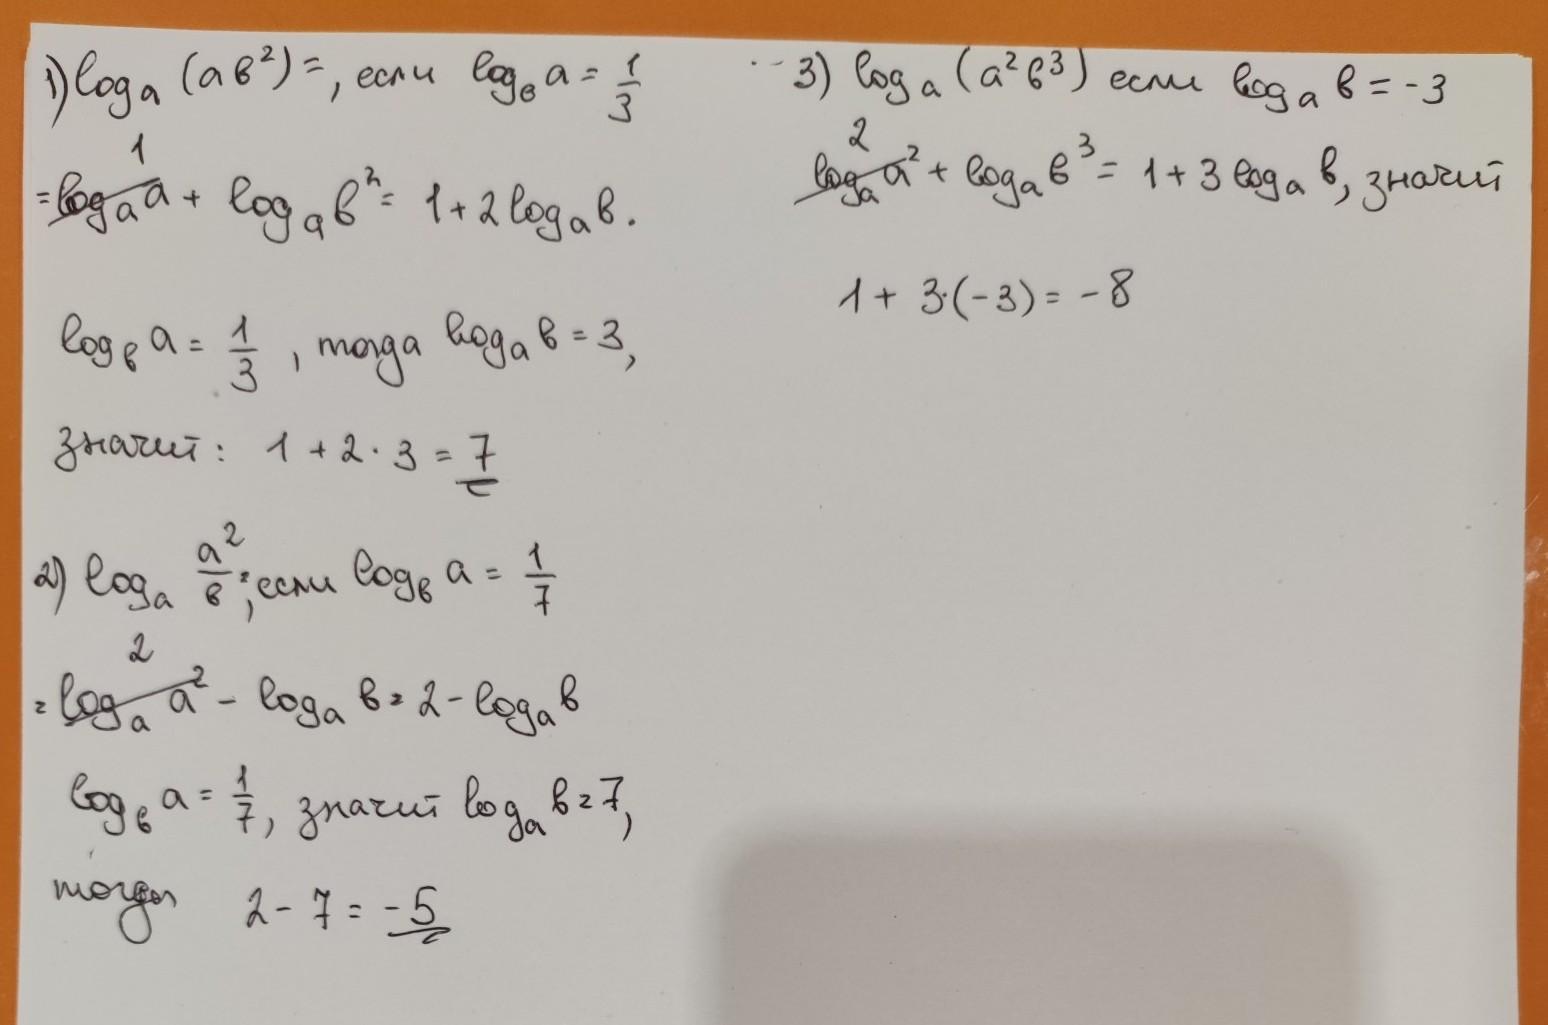 1) logₐ (ab²) = , если log_b a = 1/3
1
= logₐ a + logₐ b² = 1 + 2 logₐ b.
log_b a = 1/3 , тогда logₐ b = 3,
значит: 1 + 2 · 3 = 7
2) logₐ a²/b = ; если log_b a = 1/7
2
= logₐ a² - logₐ b = 2 - logₐ b
log_b a = 1/7, значит logₐ b = 7,
тогда 2 - 7 = -5
3) logₐ (a² b³) если logₐ b = -3
2
logₐ a² + logₐ b³ = 1 + 3 logₐ b, значит
1 + 3·(-3) = -8